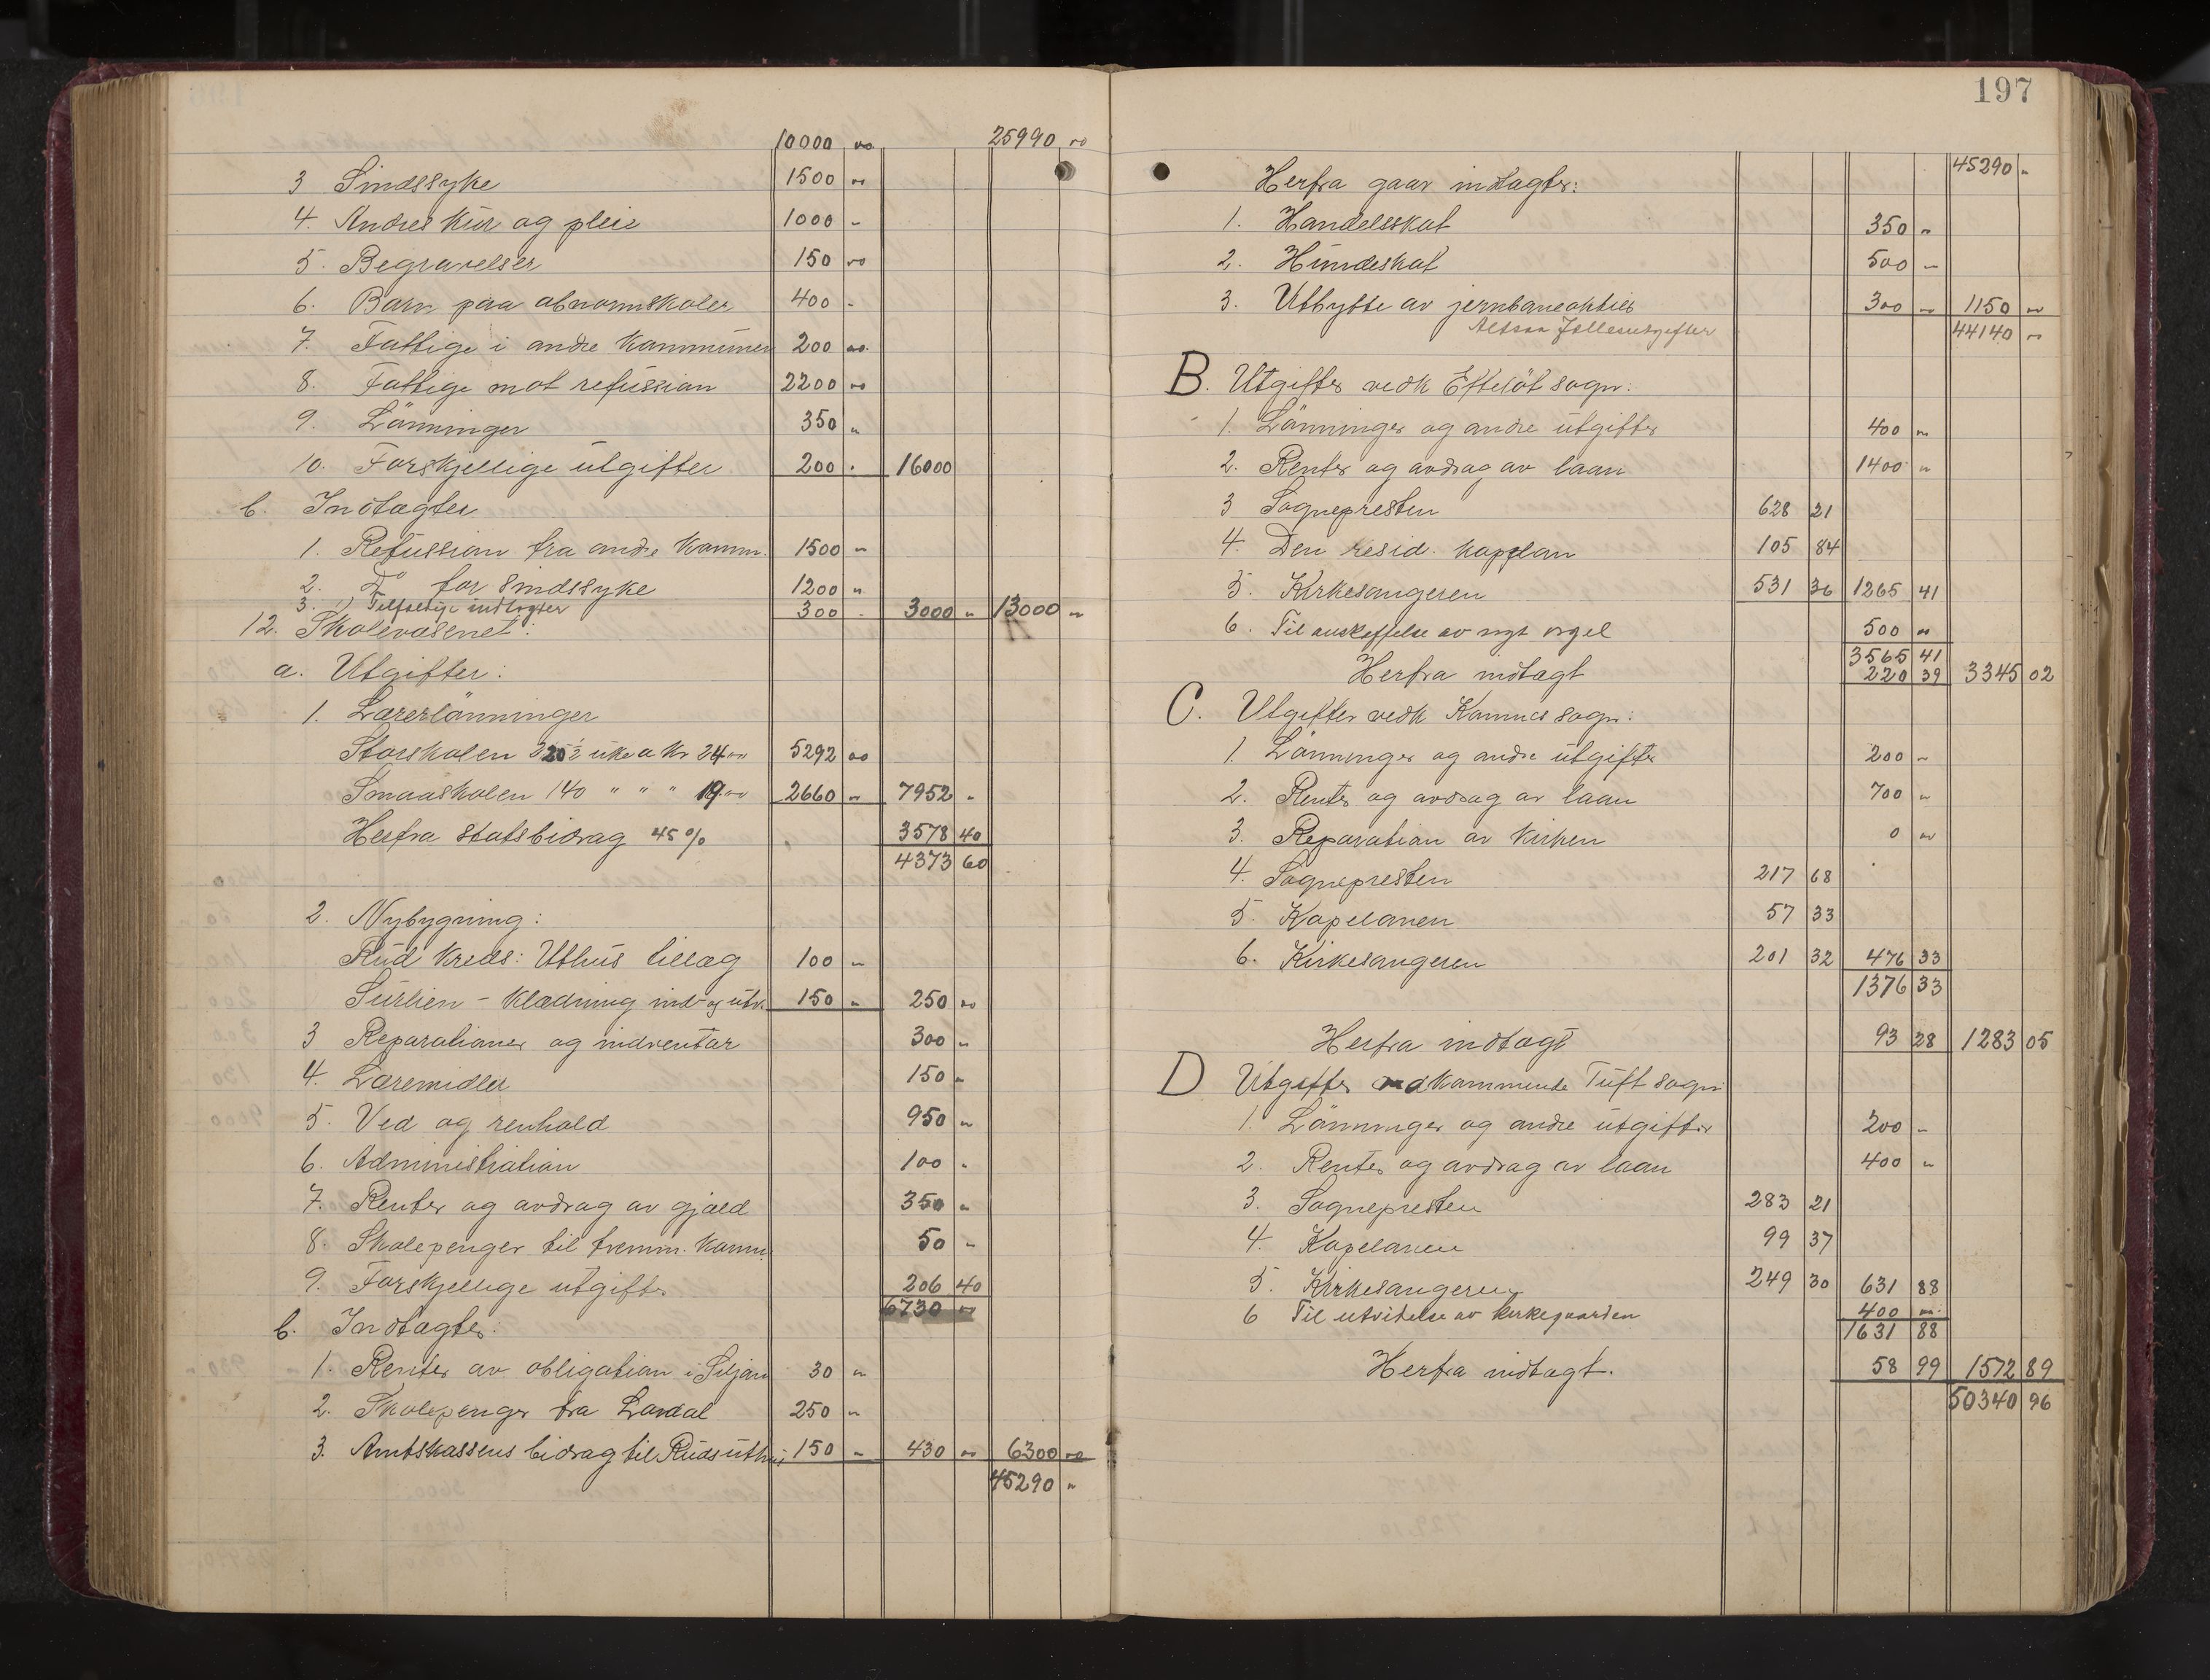 10000 " 25990 "
3 Sindssyke 1500 "
4. Andres kur og pleie 1000 "
5. Begravelser 150 "
6. Barn paa abnormskoler 400 "
7. Fattige i andre kommuner 200 "
8. Fattige mot refussion 2200 "
9. Lönninger 350 "
10. Forskjellige utgifter 200 " 16000
b. Indtægter
1. Refussion fra andre komm. 1500 "
2. Do for sindssyke 1200 "
3. Tilfældige indtægter 300 " 3000 " 13000 "
12. Skolevæsenet:
a. Utgifter:
1. Lærerlönninger
Storskolen 220½ uke a kr 24 " 5292 "
Smaaskolen 140 " " " 19 " 2660 " 7952 "
Herfra statsbidrag 45% 3578 40
4373 60
2. Nybygning:
Rud kreds: Uthus tillæg 100 "
Surlien - klædning ind- og utv. 150 " 250 "
3 Reparationer og indventar 300 "
4. Læremidler 150 "
5. Ved og renhold 950 "
6. Administration 100 "
7. Renter og avdrag av gjæld 350 "
8. Skolepenger til fremm. komm. 50 "
9. Forskjellige utgifter 206 40
6730 "
b. Indtægter:
1. Renter av obligation i Siljan 30 "
2. Skolepenger fra Lardal 250 "
3. Amtskassens bidrag til Ruds uthus 150 " 430 " 6300 "
45290 "
197
45290 "
Herfra gaar indtægter:
1. Handelsskat 350 "
2. Hundeskat 500 "
3. Utbytte av jernbaneaktier 300 " 1150 "
Altsaa Fællesutgifter 44140 "
B. Utgifter vedk Efteløt sogn:
1. Lönninger og andre utgifter 400 "
2. Renter og avdrag av laan 1400 "
3 Sognepresten 628 21
4. Den resid. kappelan 105 84
5. Kirkesangeren 531 36 1265 41
6. Til anskaffelse av nyt orgel 500 "
3565 41
Herfra indtægt 220 39 3345 02
C. Utgifter vedk Komnes sogn:
1. Lönninger og andre utgifter 200 "
2. Renter og avdrag av laan 700 "
3. Reparation av kirken 0 "
4. Sognepresten 217 68
5. Kapelanen 57 33
6. Kirkesangeren 201 32 476 33
1376 33
Herfra indtægt 93 28 1283 05
D Utgifter vedkommende Tuft sogn
1. Lönninger og andre utgifter 200 "
2. Renter og avdrag av laan 400 "
3. Sognepresten 283 21
4. Kapelanen 99 37
5. Kirkesangeren 249 30 631 88
6 Til utvidelse av kirkegaarden 400 "
1631 88
Herfra indtægt. 58 99 1572 89
50340 96